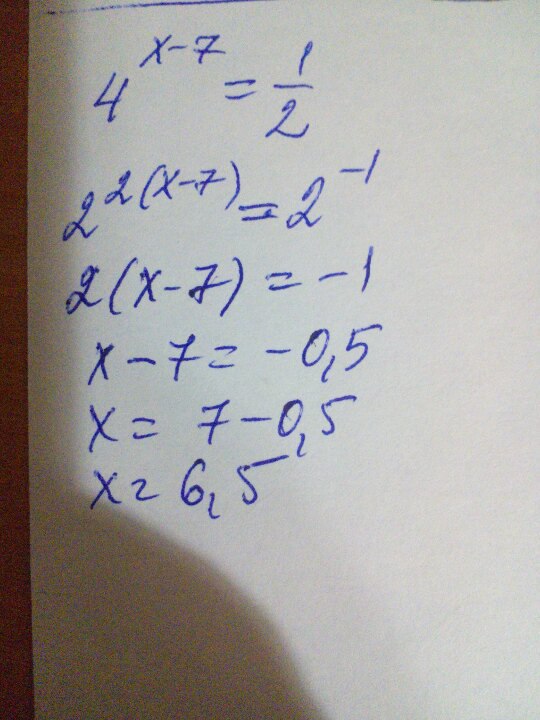 4^{x-7} = \frac{1}{2}
2^{2(x-7)} = 2^{-1}
2(x-7) = -1
x-7 = -0,5
x = 7-0,5
x = 6,5